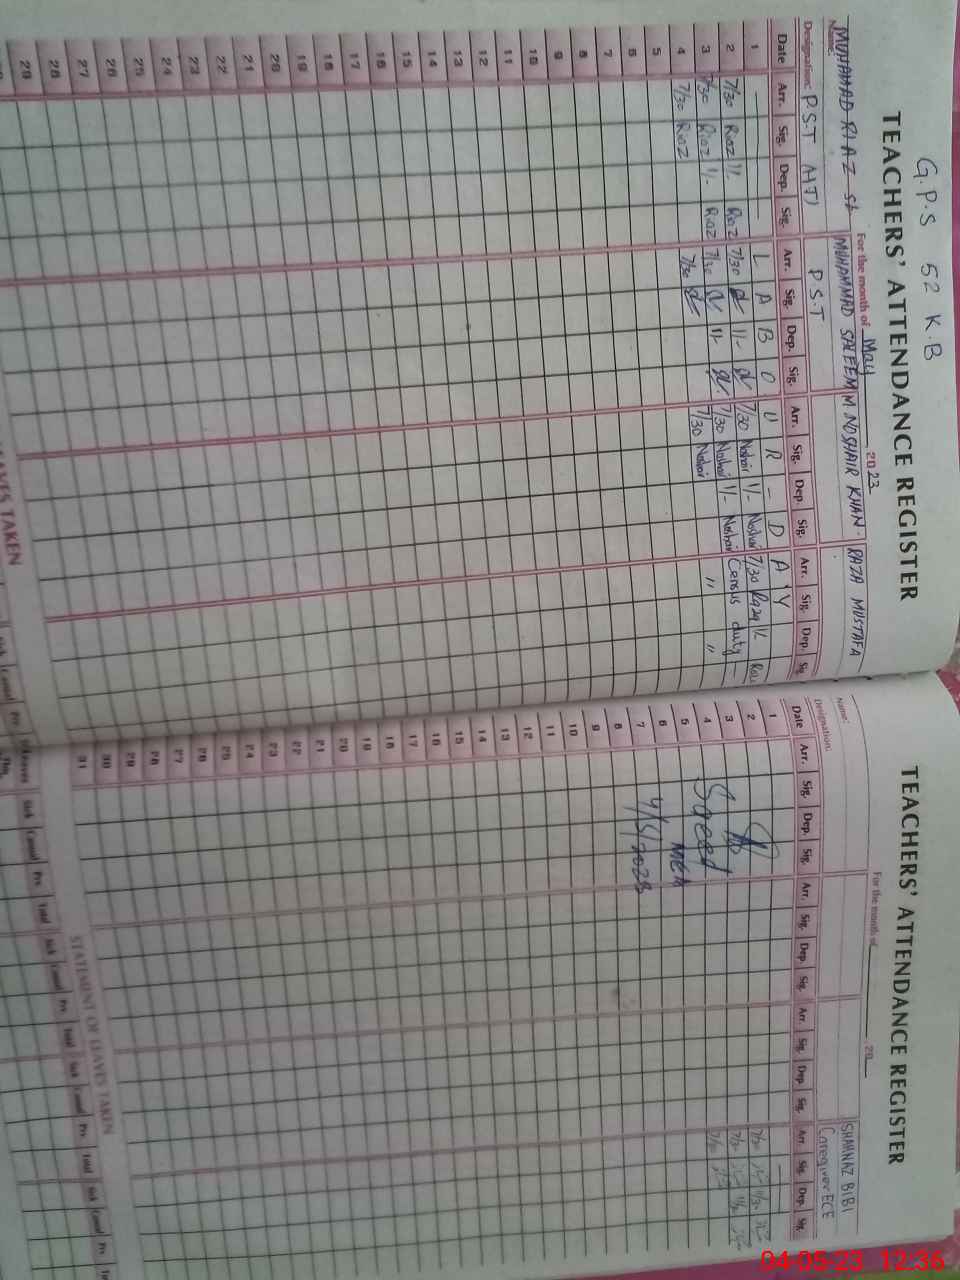 G.P.S 52 K.B
TEACHERS' ATTENDANCE REGISTER
For the month of May 2023
Name: MUHAMAD RIAZ MUHAMMAD SALEEM M NOSHAIR KHAN. RAZA MUSTAFA
Designation: P.S.T P.S.T
Date Arr. Sig. Dep. Sig. Arr. Sig. Dep. Sig. Arr. Sig. Dep. Sig. Arr. Sig. Dep. Sig
1 L A B O U R - D A Y
2 7/30 Riaz 1/- Riaz 7/30 1/- 7/30 Noshair 1/- Noshair 7/30 Raza
3 7/30 Riaz 1/- Riaz 7/30 1/- 7/30 Noshair 1/- Noshair Census duty -
4 7/30 Riaz 7/30 7/30 Noshair " "
5
6
7
8
9
10
11
12
13
14
15
16
17
18
19
20
21
22
23
24
25
26
27
28
29
LEAVES TAKEN
Sick Casual Prv.
TEACHERS' ATTENDANCE REGISTER
For the month of 20
Name: SHAHNAZ BIBI
Designation: Caregiver ECE
Date Arr. Sig. Dep. Sig. Arr. Sig. Dep. Sig. Arr. Sig. Dep. Sig. Arr. Sig. Dep. Sig.
1
2
3
4
5
6
7
8
9
10
11
12
13
14
15
16
17
18
19
20
21
22
23
24
25
26
27
28
29
30
31
Saeed
MEA
4/5/2023
STATEMENT OF LEAVES TAKEN
Leaves Sick Casual Prv. Total Sick Casual Prv. Total Sick Casual Prv. Total Sick Casual Prv.
04-05-23 12:36